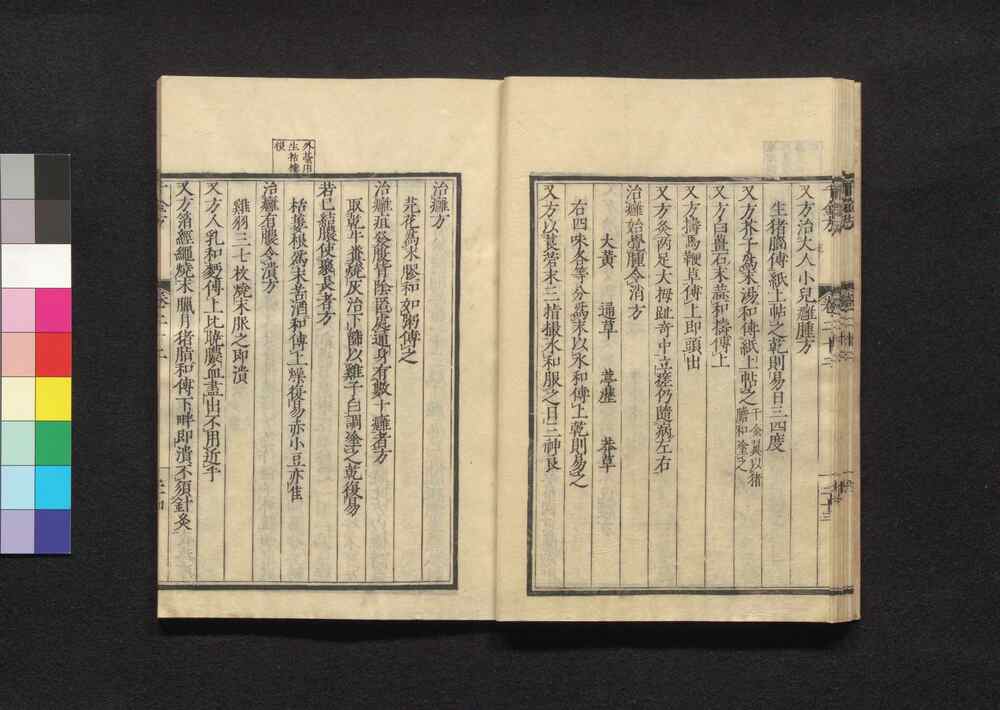 又方治大人小兒癰腫方
生猪腦傅紙上帖之乾則易日三四度
又方芥子爲末湯和傅紙上帖之千金翼以猪膽和塗之
又方白畺石末蒜和擣傅上
又方擣馬鞭草傅上即頭出
又方灸兩足大拇趾奇中立差仍隨病左右
治癰始覺腫令消方
大黃 通草 葶藶 莽草
右四味各等分爲末以水和傅上乾則易之
又方以莨菪末三指撮水和服之日三神良
外臺用生栝樓根
治癰方
芫花爲末膠和如粥傅之
治癰疽發腹背陰匿處通身有數十癰者方
取乾牛糞燒灰治下篩以雞子白調塗之乾復易
若已結膿使聚長者方
栝蔞根爲末苦酒和傅上燥復易赤小豆亦佳
治癰有膿令潰方
雞羽三七枚燒末服之即潰
又方人乳和麪傅上比曉膿血盡出不用近手
又方箔經繩燒末臘月猪脂和傅下畔即潰不須針灸
千金方 卷二十二